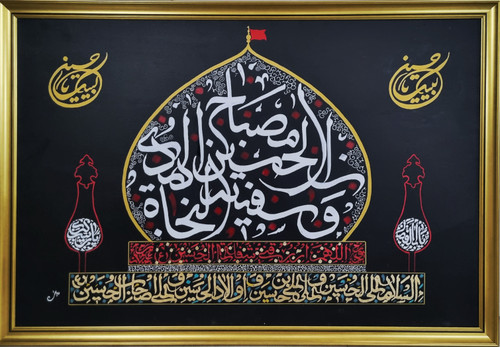 لبيك يا حسين
لبيك يا حسين
ان الحسين مصباح الهدى
وسفينة النجاة
اللهم ارزقني شفاعة الحسين
السلام على الحسين وعلى علي بن الحسين وعلى أولاد الحسين وعلى أصحاب الحسين